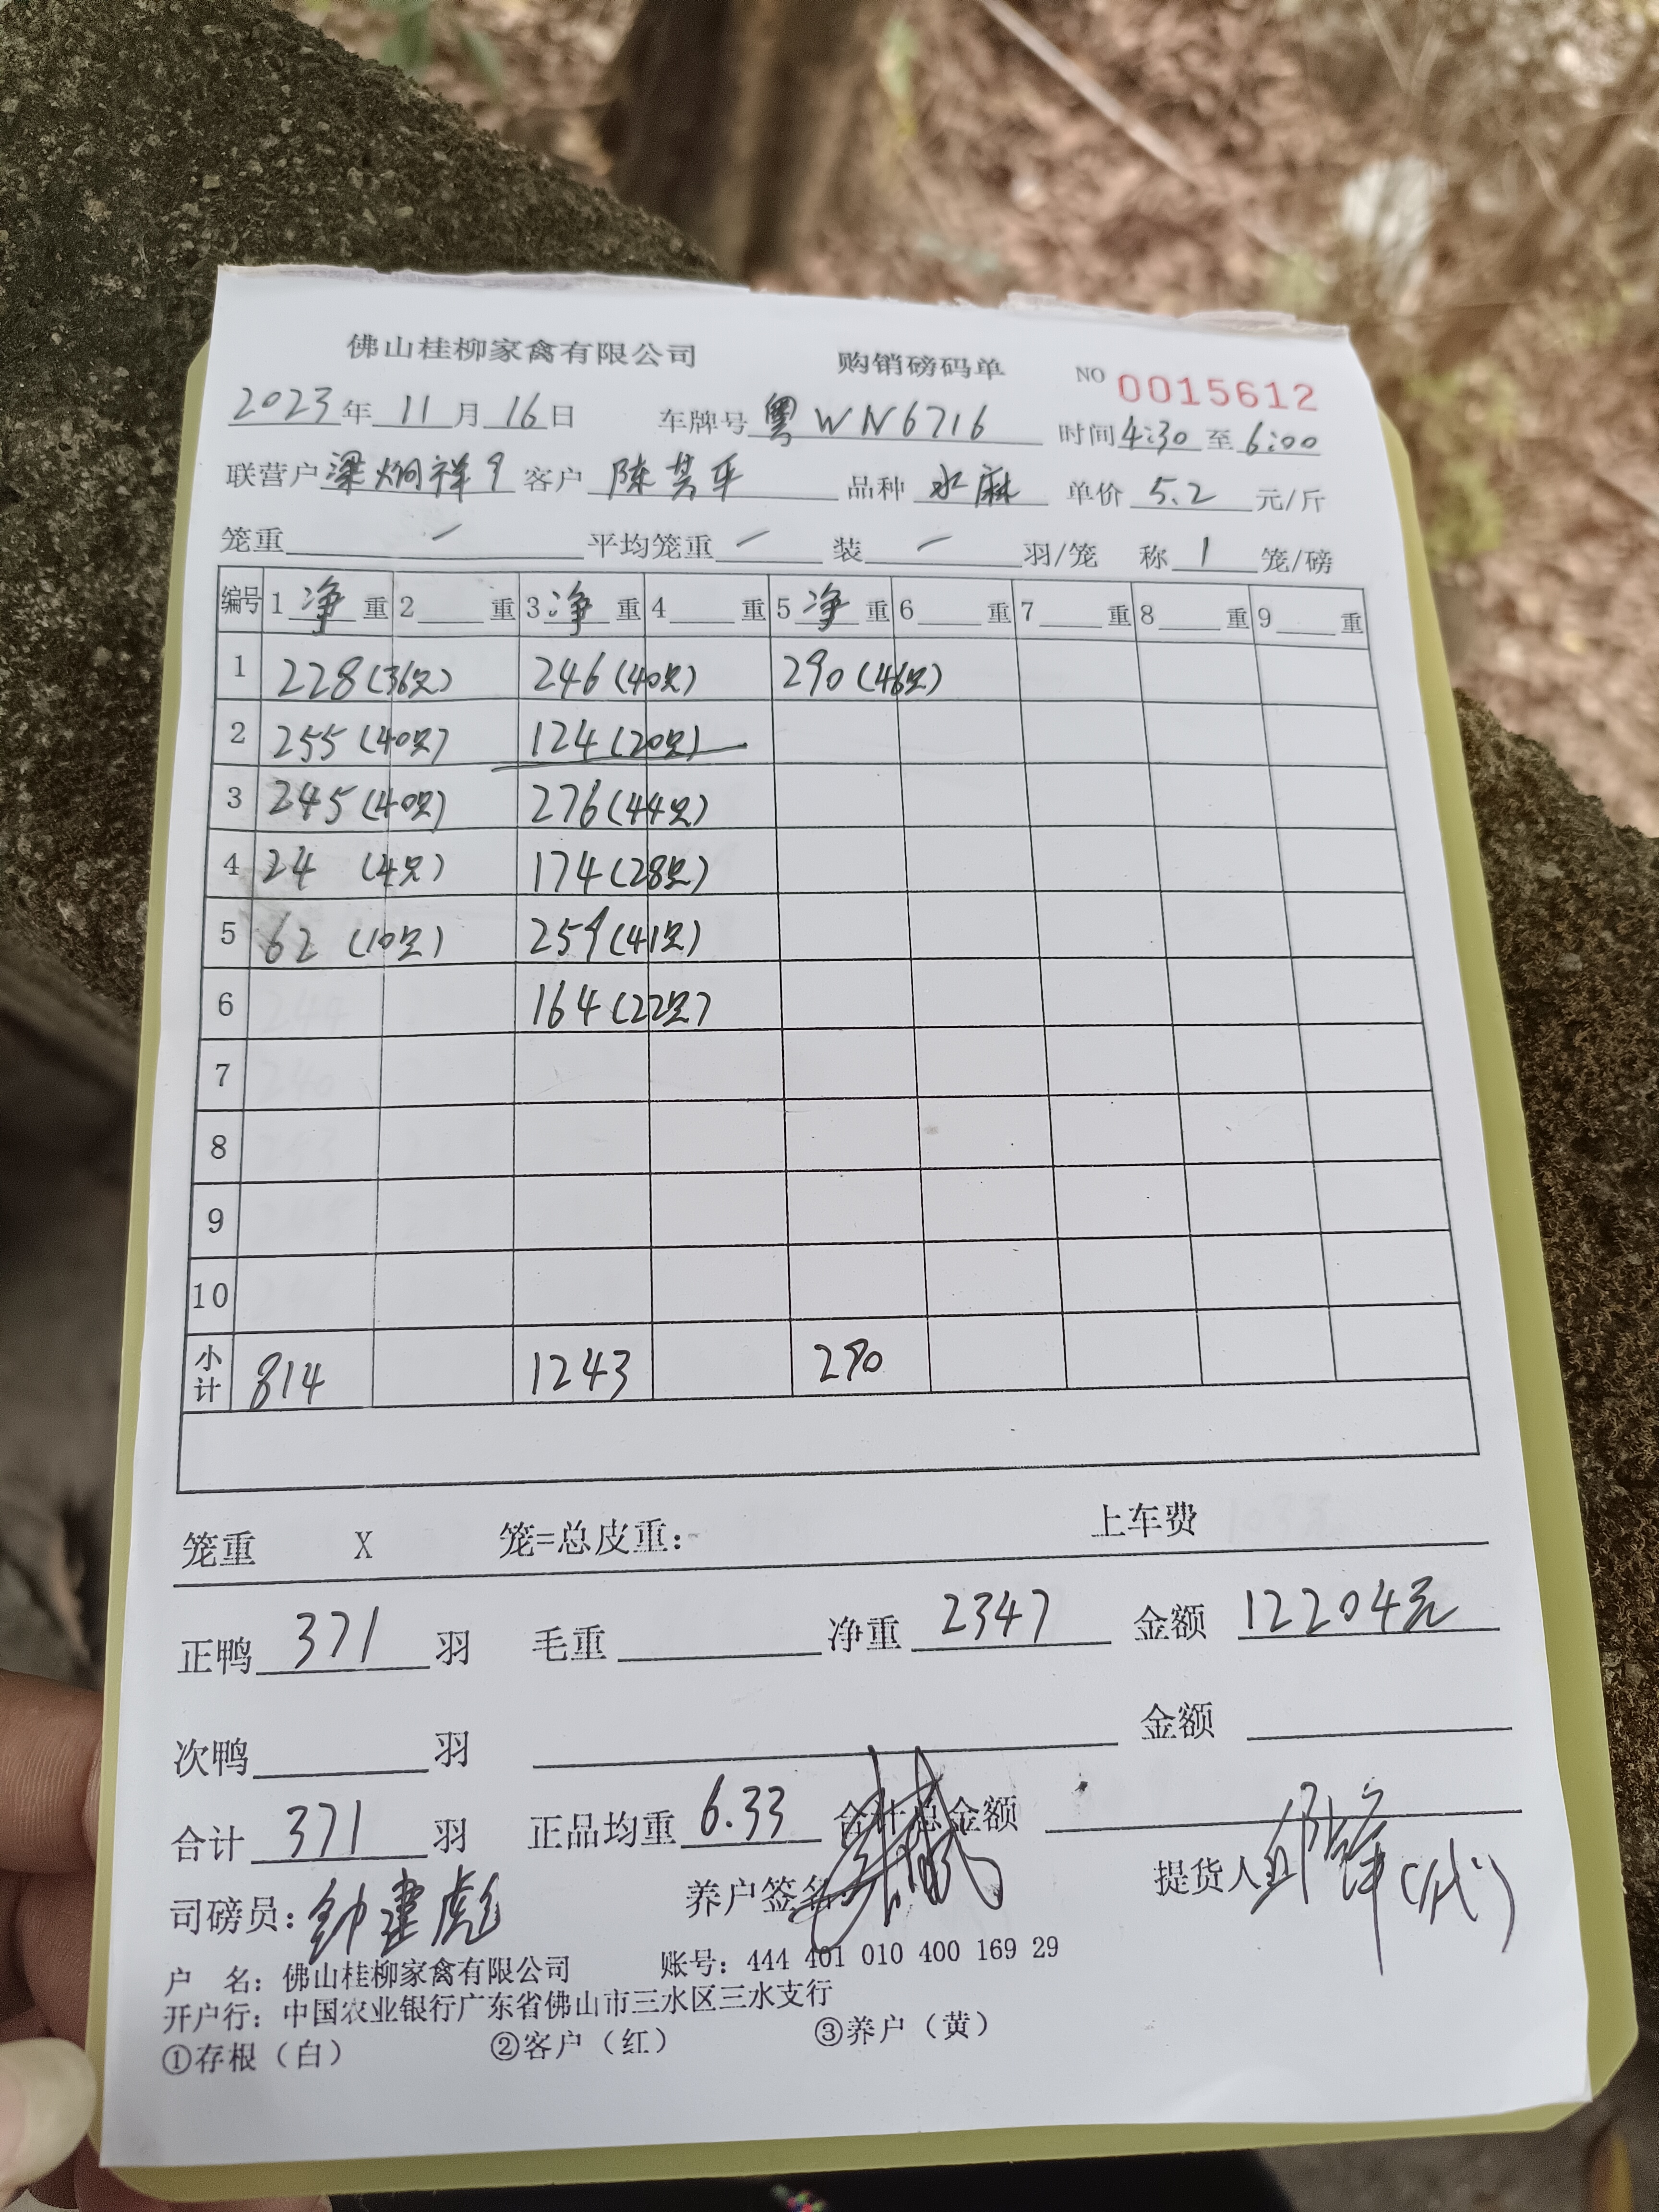 佛山桂柳家禽有限公司 购销磅码单 NO 0015612
2023年11月16日 车牌号 粤WN6716 时间4:30至6:00
联营户 梁炯祥9 客户 陈其平 品种 水麻 单价 5.2 元/斤
笼重 — 平均笼重 — 装 — 羽/笼 称 1 笼/磅
编号 1净重 2 重 3净重 4 重 5净重 6 重 7 重 8 重 9 重
1 228(36只) 246(40只) 290(46只)
2 255(40只) 124(20只)
3 245(40只) 276(44只)
4 24 (4只) 174(28只)
5 62 (10只) 259(41只)
6 164(22只)
7
8
9
10
小计 814 1243 290
笼重 X 笼=总皮重: 上车费
正鸭 371 羽 毛重 净重 2347 金额 12204元
次鸭 羽 金额
合计 371 羽 正品均重 6.33 合计总金额
司磅员: 钟建彪 养户签名 提货人 (代)
户 名: 佛山桂柳家禽有限公司 账号: 444 401 010 400 169 29
开户行: 中国农业银行广东省佛山市三水区三水支行
①存根（白） ②客户（红） ③养户（黄）